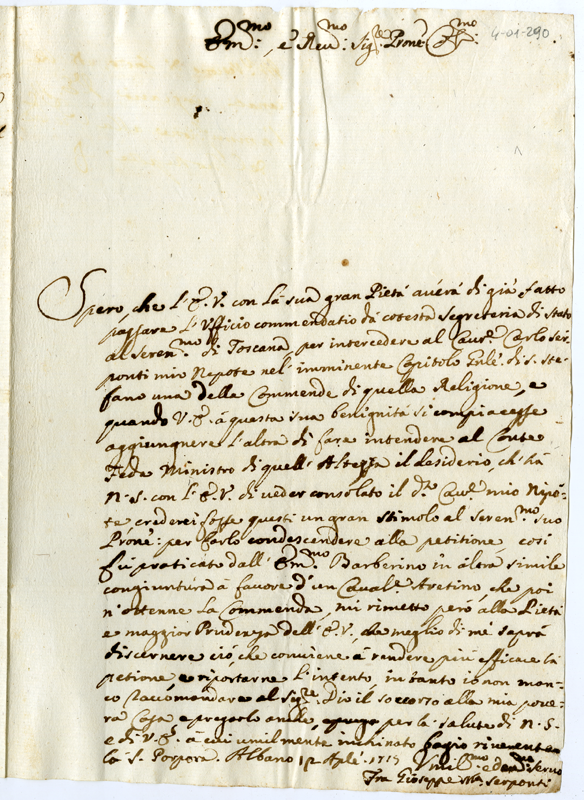 4-01-290
Em.mo, e Reu.mo Sig.re Prone Col.mo
Spero, che l'E.V. con la sua gran Pietà auerà di già fatto
passare l'Ufficio commendatio da cotesta segreteria di stato
al Seren.mo di Toscana per intercedere al Cau.r Carlo Ser,
ponti mio Nepote nel' imminente Capitolo Gnle' di S. Ste,
fano una della Commende di quella Religione, e
quando V.E. à questa sua benignità si compiacesse
aggiungnere l'altra di fare intendere al Conte
Feda Ministro di quell'Altezza il desiderio, ch'hà
N.S. con l'E.V. di ueder consolato il d.o Cau.r mio Nipo,
te crederei fosse questi un gran stimolo al Seren.mo suo
Prone: per farlo condescendere alla petitione così
fù praticato dall'Em.mo Barberino in altra simile
congiuntura à fauore d'un Caual.e Aretino, che poi
n'ottenne la Commenda, mi rimetto però alla Pietà
e maggior Prudenza dell'E.V., che meglio di me saprà
discernere ciò, che conuiene à rendere più efficace la
petione, e riportarne l'intento, in tanto io non man,
co raccomandare al Sig.re Dio il soccorso alla mia poue,
ra Casa e pregarlo anche, per la salute di N.S.
e di V.E. à cui umilmente inchinato bagio riuerentem
la S. Porpora. Albano 12 Aple. 1715
Umil.mo e deu.mo seruo
Fra Giuseppe Ma. Serponti